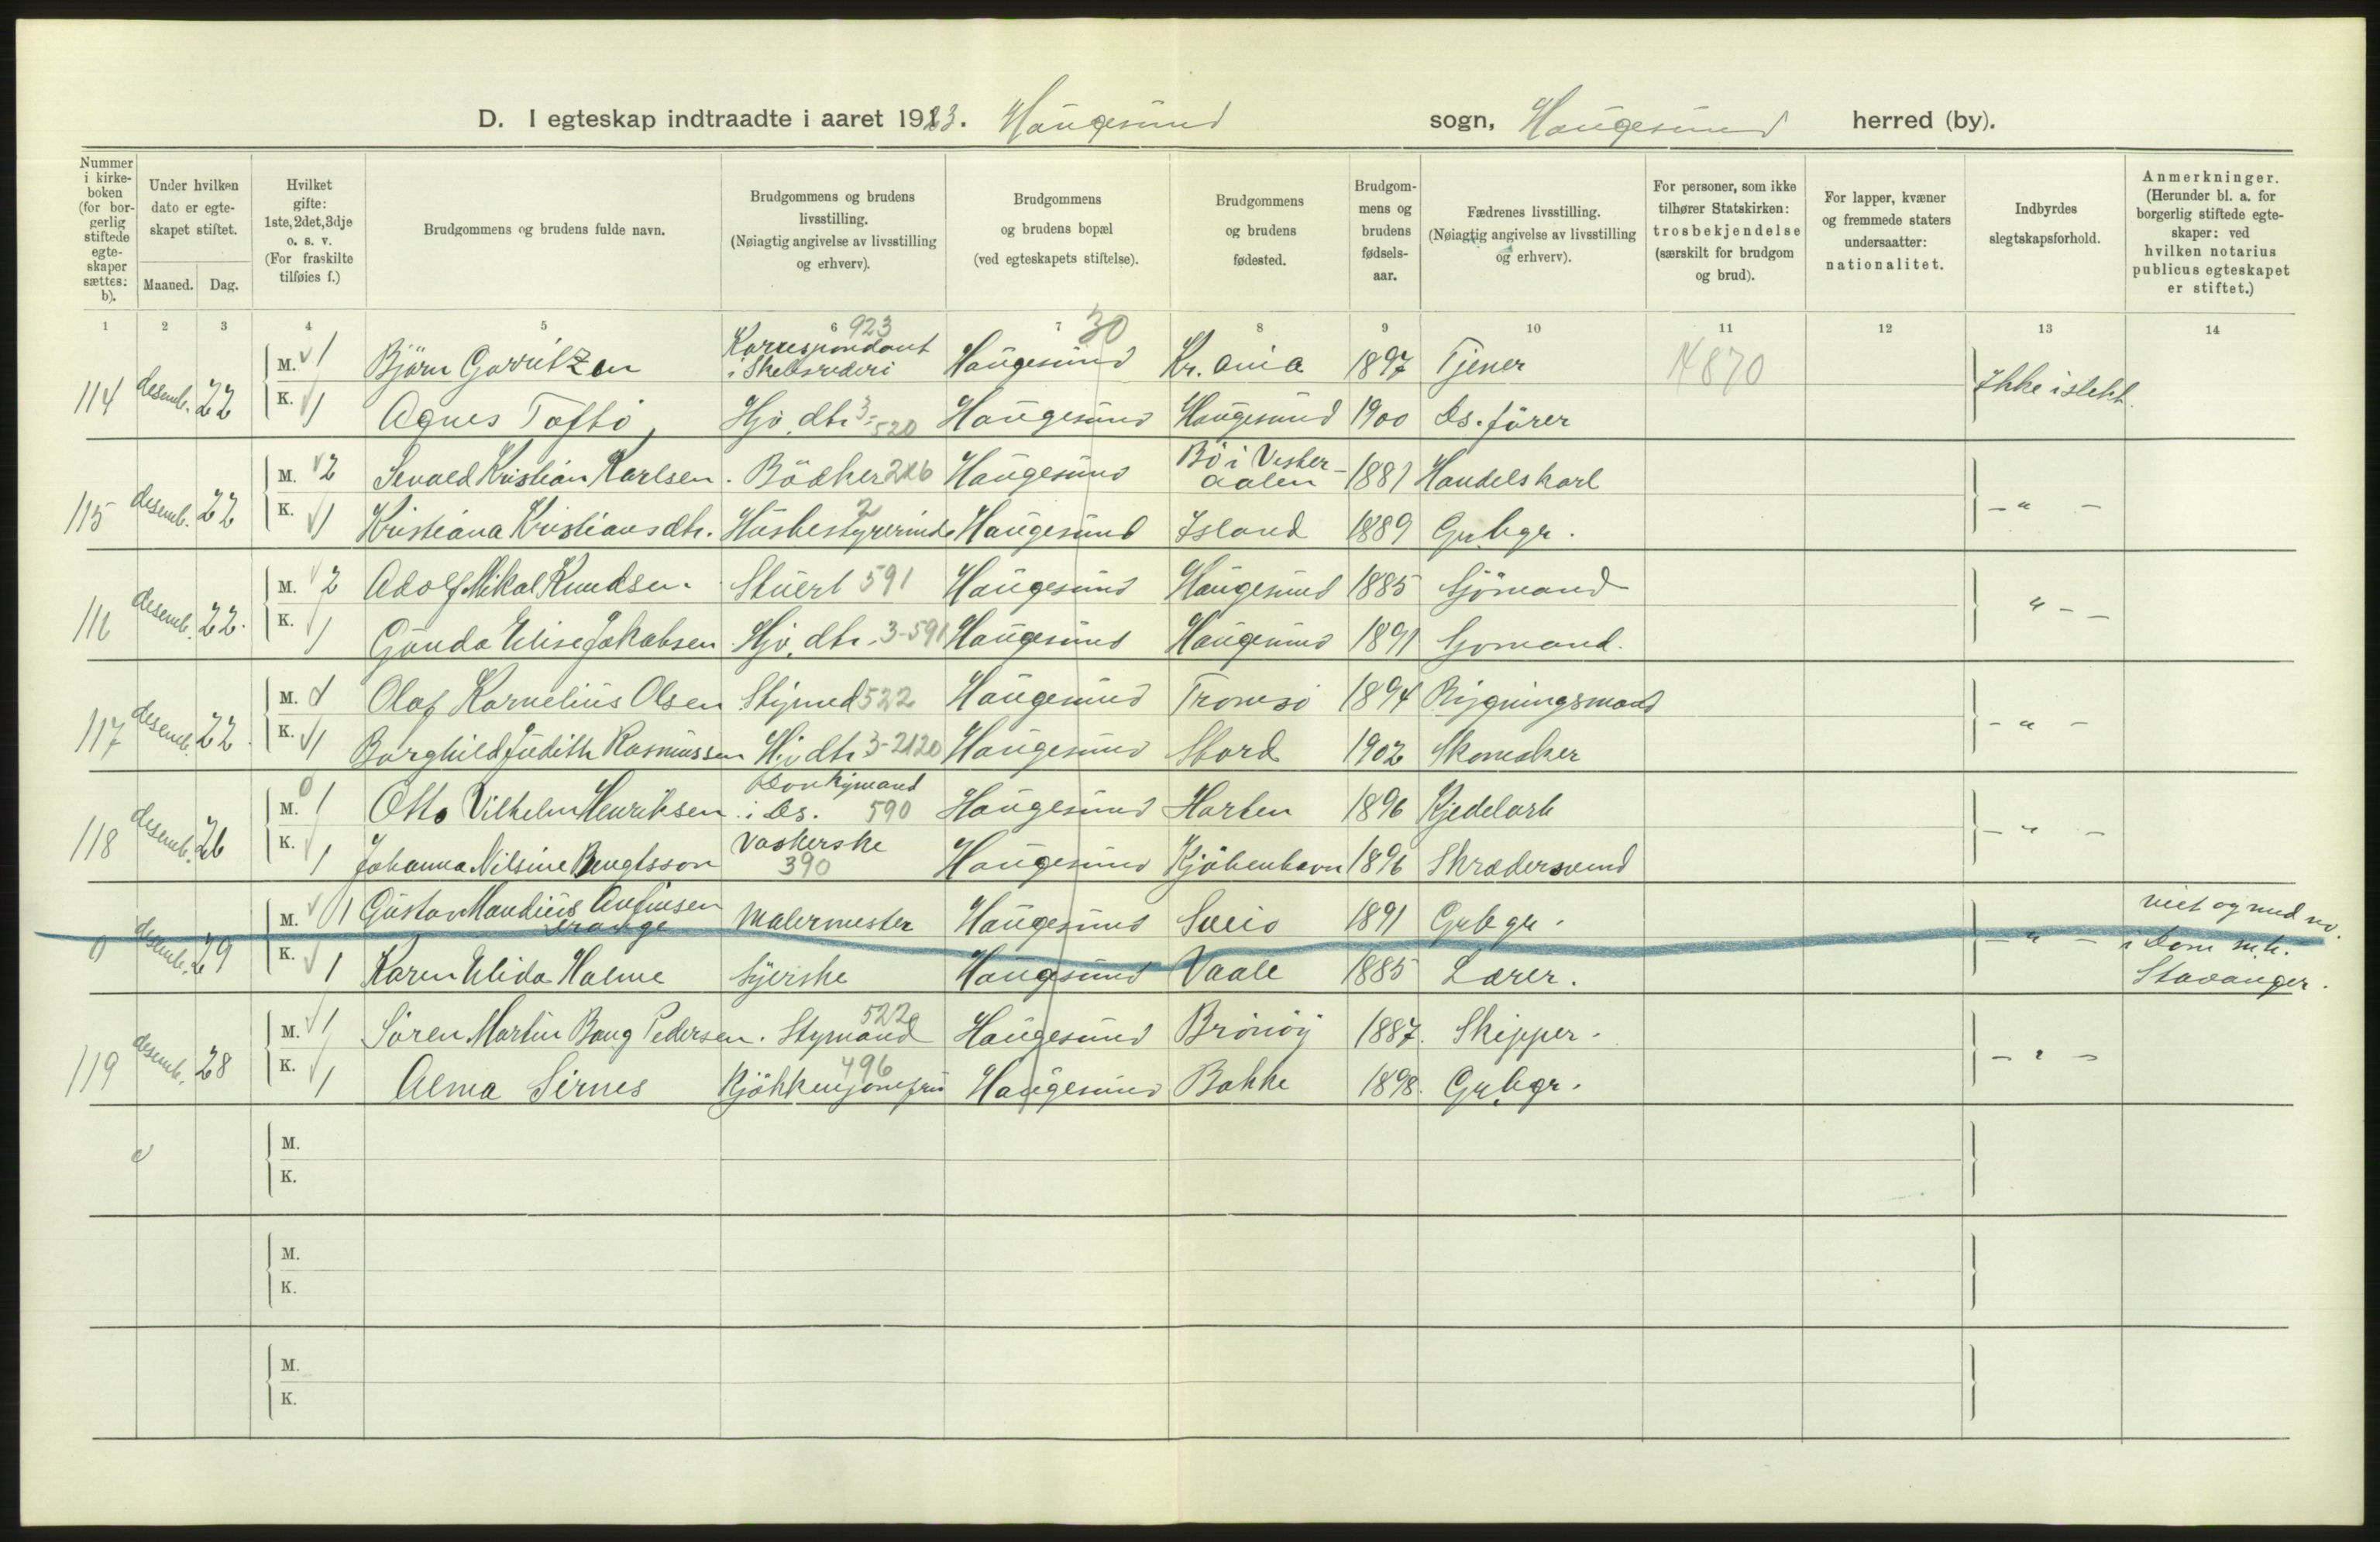 D. I egteskap indtraadte i aaret 1923. Haugesund sogn, Haugesund herred (by).
Nummer i kirke-boken (for bor-gerlig stiftede egte-skaper sættes: b).
Under hvilken dato er egte-skapet stiftet.
Maaned. Dag.
Hvilket gifte: 1ste, 2det, 3dje o. s. v. (For fraskilte tilføies f.)
Brudgommens og brudens fulde navn.
Brudgommens og brudens livsstilling. (Nøiagtig angivelse av livsstilling og erhverv).
Brudgommens og brudens bopæl (ved egteskapets stiftelse).
Brudgommens og brudens fødested.
Brudgom-mens og brudens fødsels-aar.
Fædrenes livsstilling. (Nøiagtig angivelse av livsstilling og erhverv).
For personer, som ikke tilhører Statskirken: trosbekjendelse (særskilt for brudgom og brud).
For lapper, kvæner og fremmede staters undersaatter: nationalitet.
Indbyrdes slegtskapsforhold.
Anmerkninger. (Herunder bl. a. for borgerlig stiftede egte-skaper: ved hvilken notarius publicus egteskapet er stiftet.)
1 2 3 4 5 6 7 8 9 10 11 12 13 14
923 30
114 desemb. 22 M. 1 Björn Gorritzen Korrespondent i Skibsrederi Haugesund Kr.ania 1897 Tjener 14870 Ikke i slekt.
K. 1 Agnes Toftö Hjv. dtr. 3-520 Haugesund Haugesund 1900 Ds. förer
115 desemb. 22 M. 2 Sevald Kristian Karlsen. Bödker 216 Haugesund Bö i Vester-aalen 1881 Handelskarl - " -
K. 1 Kristiana Kristiansdtr. Husbestyrerinde 2 Haugesund Island 1889 Grbgr.
116 desemb. 22. M. 2 Adolf Mikal Knudsen Stuert 591 Haugesund Haugesund 1885 Sjömand " - -
K. 1 Gunda Elise Jakobsen Hjv. dtr. 3-591 Haugesund Haugesund 1891 Sjömand.
117 desemb. 22. M. 1 Olaf Kornelius Olsen Stymd 522 Haugesund Tromsö 1894 Rigningsmand - " -
K. 1 Borghild Judith Rasmussen Hjv dtr 3-2120 Haugesund Stord 1902 Skomaker
118 desemb. 26 M. 1 Otto Vilhelm Henriksen Donkymand i Ds. 590 Haugesund Horten 1896 Kjedelarb - " -
K. 1 Johanna Nilsine Bengtsson Vaskerske 390 Haugesund Kjöbenhavn 1896 Skrædersvend
0 desemb. 29 M. 1 Gustav Mandius Anfinsen Malermester Haugesund Sveio 1891 Grbgr. - " - viet og med no. i Dom m.k. Stavanger.
K. 1 Karen Elida Holme Syerske Haugesund Vaale 1885 Lærer.
119 desemb. 28 M. 1 Sören Martin Baug Pedersen. Stymand 522 Haugesund Brönöy 1887. Skipper. - " -
K. 1 Alma Sirnes Kjökkenjomfru 496 Haugesund Bakke 1898. Grbgr.
M.
K.
M.
K.
M.
K.